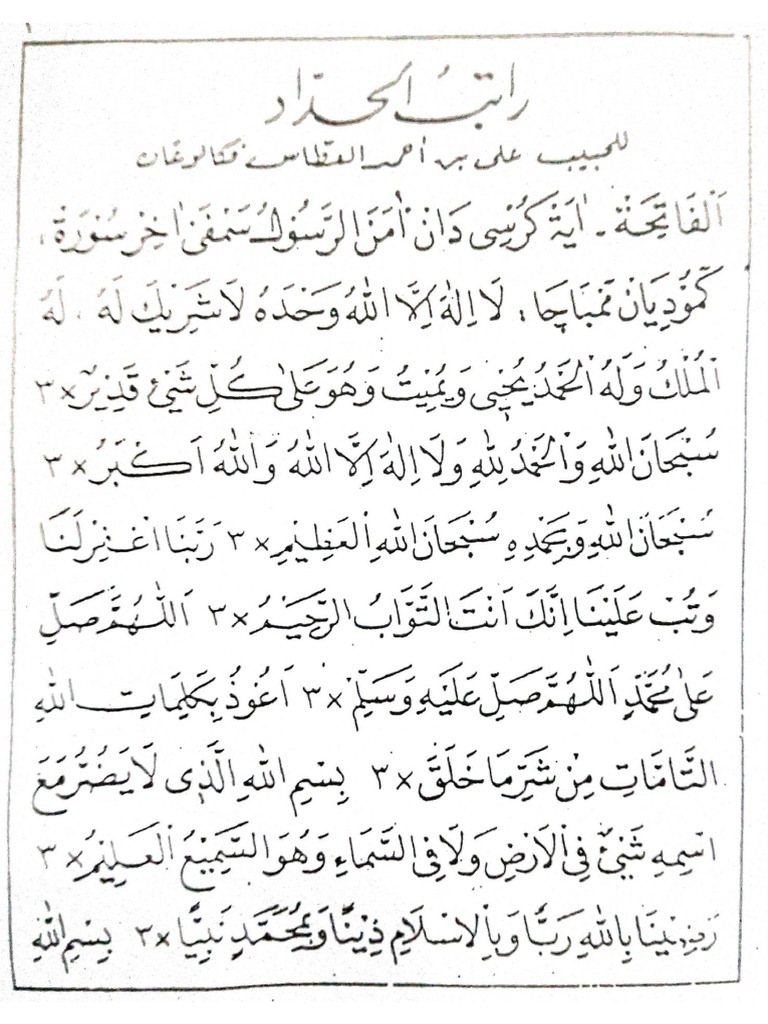 ١
راتب الحدّاد
للحبيب علي بن أحمد العطاس فكالوغان
اَلْفَاتِحَةْ ـ اٰيَةْ كُرْسِى دَانْ اٰمَنَ الرَّسُوْلُ سَمْفَىْ اٰخِرْ سُوْرَةْ ،
كَمُوْدِيَانْ مَمْبَاچَا : لَا اِلٰهَ اِلَّا اللهُ وَحْدَهُ لَاشَرِيْكَ لَهُ ، لَهُ
الْمُلْكُ وَلَهُ الْحَمْدُ يُحْيِى وَيُمِيْتُ وَهُوَ عَلٰى كُلِّ شَيْئٍ قَدِيْرٌ × ٣
سُبْحَانَ اللهِ وَالْحَمْدُ لِلّٰهِ وَلَا اِلٰهَ اِلَّا اللهُ وَاللهُ اَكْبَرُ × ٣
سُبْحَانَ اللهِ وَبِحَمْدِهِ سُبْحَانَ اللهِ الْعَظِيْمِ × ٣ رَبَّنَا اغْفِرْلَنَا
وَتُبْ عَلَيْنَا اِنَّكَ اَنْتَ التَّوَّابُ الرَّحِيْمُ × ٣ اَللّٰهُمَّ صَلِّ
عَلٰى مُحَمَّدٍ اَللّٰهُمَّ صَلِّ عَلَيْهِ وَسَلِّمْ × ٣ اَعُوْذُ بِكَلِمَاتِ اللهِ
التَّامَّاتِ مِنْ شَرِّ مَا خَلَقَ × ٣ بِسْمِ اللهِ الَّذِى لَا يَضُرُّ مَعَ
اسْمِهِ شَيْئٌ فِى الْاَرْضِ وَلَا فِى السَّمَاءِ وَهُوَ السَّمِيْعُ الْعَلِيْمُ × ٣
رَضِيْنَا بِاللهِ رَبًّا وَبِالْاِسْلَامِ دِيْنًا وَبِمُحَمَّدٍ نَبِيًّا × ٣ بِسْمِ اللهِ